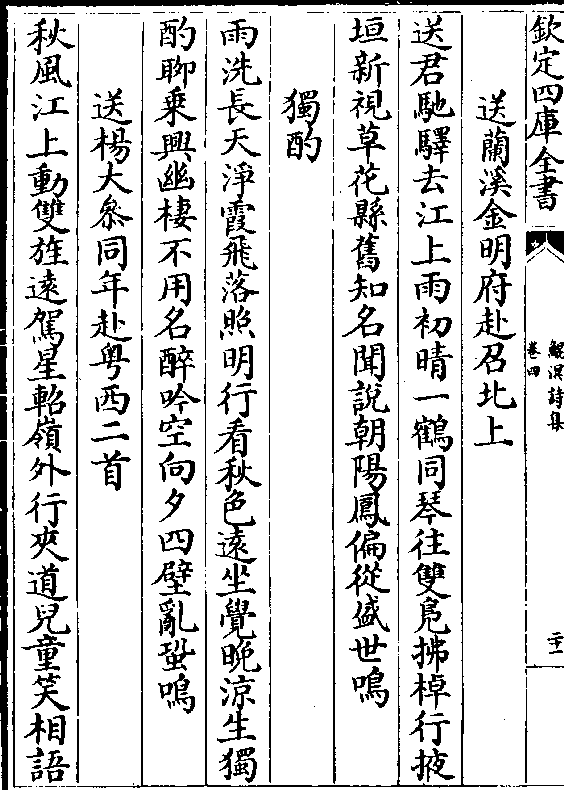 欽定四庫全書
鯤溟詩集
卷四
二十一
送蘭溪金明府赴召北上
送君馳驛去江上雨初晴一鶴同琴往雙鳬拂棹行掖
垣新視草花縣舊知名聞說朝陽鳳偏從盛世鳴
獨酌
雨洗長天淨霞飛落照明行看秋色遠坐覺晚涼生獨
酌聊乘興幽棲不用名醉吟空向夕四壁亂蛩鳴
送楊大叅同年赴粤西二首
秋風江上動雙旌遠駕星軺嶺外行夾道兒童笑相語